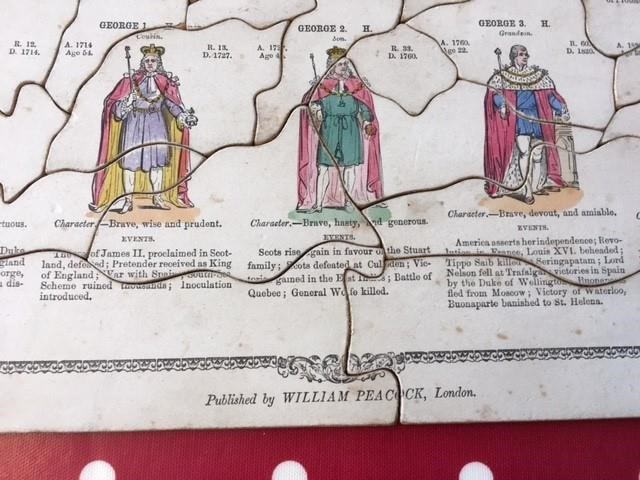 GEORGE 1.
Cousin.
R. 12.
D. 1714.
A. 1714
Age 54.
R. 13.
D. 1727.
Character.—Brave, wise and prudent.
EVENTS.
of James II. proclaimed in Scot-
land, defeated; Pretender received as King
of England; War with Spain South-Sea
Scheme ruined thousands; Inoculation
introduced.
GEORGE 2. H.
Son.
R. 33.
D. 1760.
Character.—Brave, hasty, and generous.
EVENTS.
Scots rise again in favour of the Stuart
family; Scots defeated at Culloden; Vic-
tories gained in the East Indies; Battle of
Quebec; General Wolfe killed.
GEORGE 3. H.
Grandson.
A. 1760.
Age 22.
R. 60.
D. 1820.
Character.—Brave, devout, and amiable.
EVENTS.
America asserts her independence; Revo-
lution in France, Louis XVI. beheaded;
Tippo Saib killed Seringapatam; Lord
Nelson fell at Trafalgar; victories in Spain
by the Duke of Wellington
fled from Moscow; Victory of Waterloo,
Buonaparte banished to St. Helena.
Published by WILLIAM PEACOCK, London.